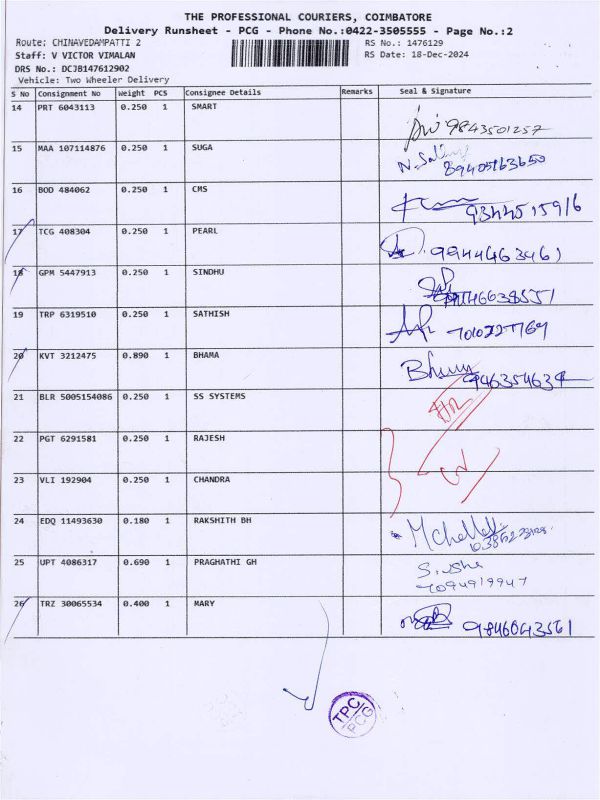 THE PROFESSIONAL COURIERS, COIMBATORE
Delivery Runsheet - PCG - Phone No.:0422-3505555 - Page No.:2
Route: CHINAVEDAMPATTI 2
RS No.: 1476129
Staff: V VICTOR VIMALAN
RS Date: 18-Dec-2024
DRS No.: DCJB147612902
Vehicle: Two Wheeler Delivery
S No Consignment No Weight PCS Consignee Details Remarks Seal & Signature
14 PRT 6043113 0.250 1 SMART
9843501257
15 MAA 107114876 0.250 1 SUGA
89405163650
16 BOD 484062 0.250 1 CMS
9344515916
17 TCG 408304 0.250 1 PEARL
9944463461
18 GPM 5447913 0.250 1 SINDHU
19 TRP 6319510 0.250 1 SATHISH
20 KVT 3212475 0.890 1 BHAMA
21 BLR 5005154086 0.250 1 SS SYSTEMS
22 PGT 6291581 0.250 1 RAJESH
23 VLI 192904 0.250 1 CHANDRA
24 EDQ 11493630 0.180 1 RAKSHITH BH
25 UPT 4086317 0.690 1 PRAGHATHI GH
S. usha
7094919947
26 TRZ 30065534 0.400 1 MARY
9846043561
TPC/
PCG